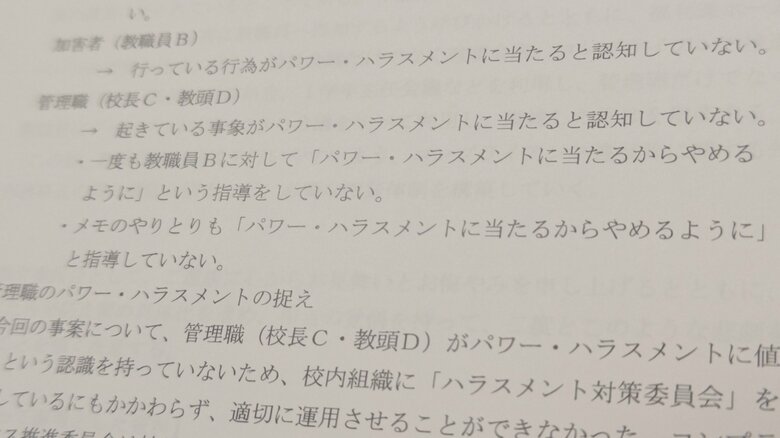 い。
加害者（教職員Ｂ）
→ 行っている行為がパワー・ハラスメントに当たると認知していない。
管理職（校長Ｃ・教頭Ｄ）
→ 起きている事象がパワー・ハラスメントに当たると認知していない。
・一度も教職員Ｂに対して「パワー・ハラスメントに当たるからやめる
ように」という指導をしていない。
・メモのやりとりも「パワー・ハラスメントに当たるからやめるように」
と指導していない。
管理職のパワー・ハラスメントの捉え
今回の事案について、管理職（校長Ｃ・教頭Ｄ）がパワー・ハラスメントに値
という認識を持っていないため、校内組織に「ハラスメント対策委員会」を
しているにもかかわらず、適切に運用させることができなかった。
推進委員会